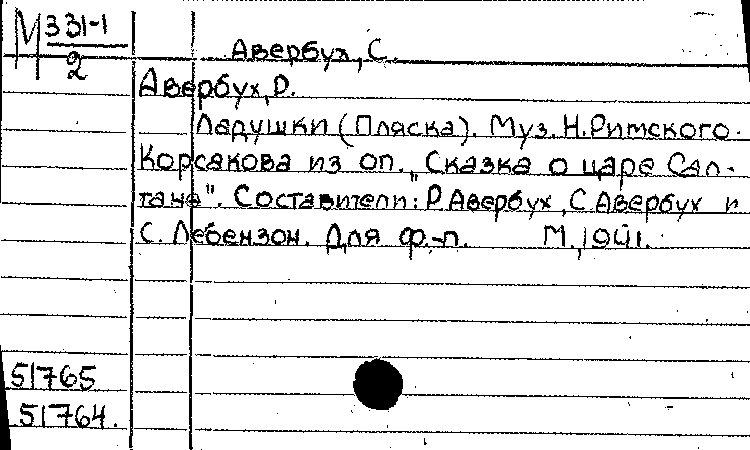 М 331-1
2
Авербух, С.
Авербух, Р.
Ладушки (Пляска). Муз. Н. Римского-
Корсакова из оп. „Сказка о царе Сал-
тане". Составители: Р. Авербух, С. Авербух и
С. Лебензон. Для ф.-п. М., 1941.
51765
51764.